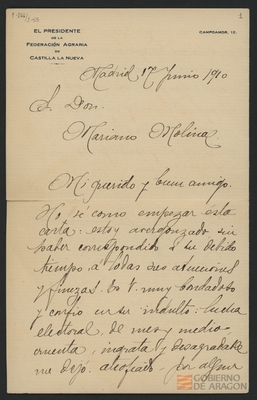 1
EL PRESIDENTE
DE LA
FEDERACIÓN AGRARIA
DE
CASTILLA LA NUEVA
CAMPOAMOR, 12.
Madrid 17 Junio 1910
S. Don
Mariano Molina
Mi querido y buen amigo.
No sé como empezar esta
carta: estoy avergonzado sin
haber correspondido a su debido
tiempo a todas sus atenciones
y finezas. Es V. muy bondadoso
y confio en su indulto. lucha
electoral de mes y medio
cruenta, ingrata y desagradable
me dejó
GOBIERNO
DE ARAGON